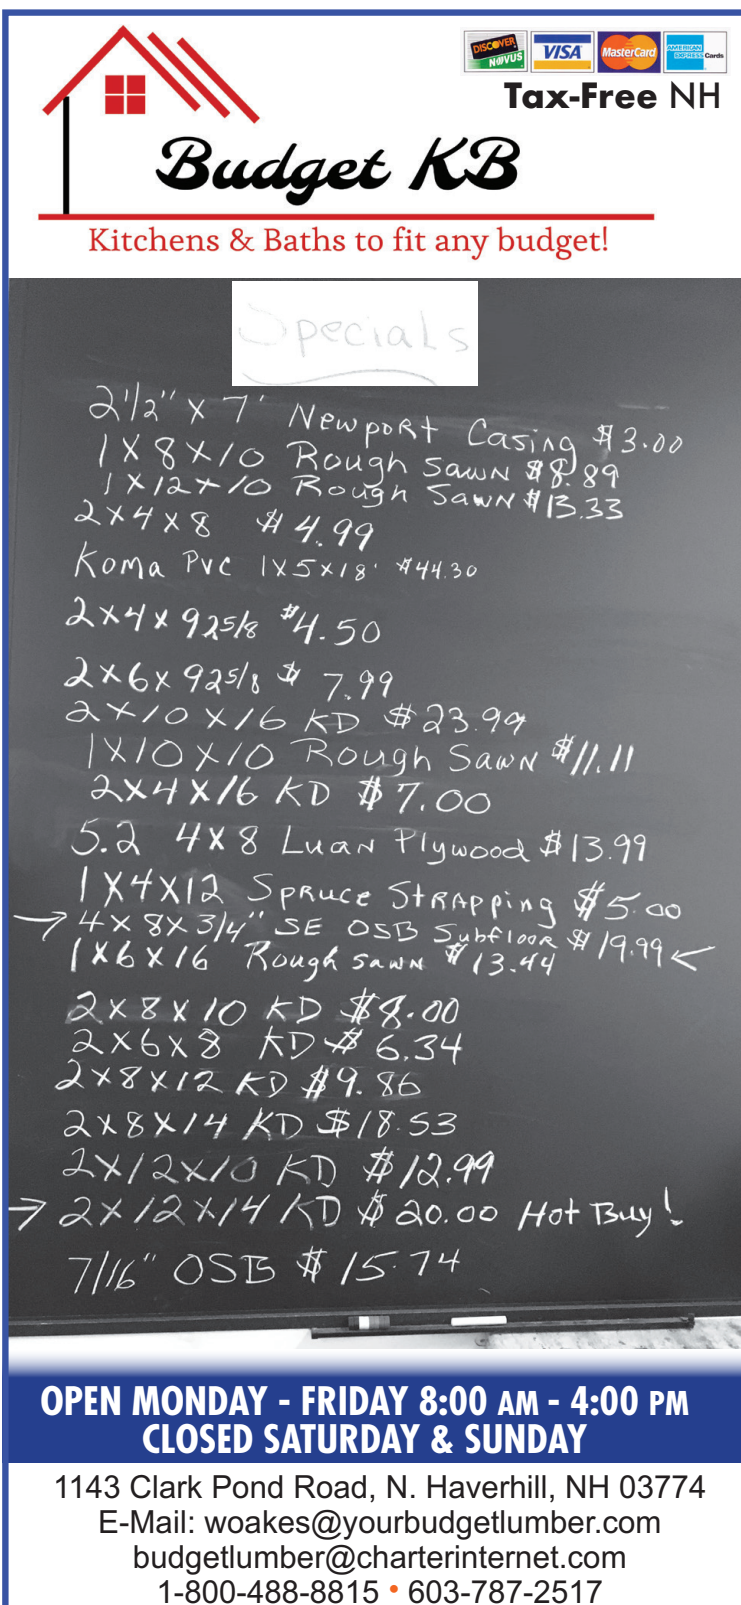 DISCOVER NOVUS VISA MasterCard AMERICAN EXPRESS Cards
Tax-Free NH
Budget KB
Kitchens & Baths to fit any budget!
Specials
2 1/2" x 7' Newport Casing $3.00
1x8x10 Rough Sawn $8.89
1x12x10 Rough Sawn $13.33
2x4x8 $4.99
Koma PVC 1x5x18' $44.30
2x4x925/8 $4.50
2x6x925/8 $7.99
2x10x16 KD $23.99
1x10x10 Rough Sawn $11.11
2x4x16 KD $7.00
5.2 4x8 Luan Plywood $13.99
1x4x12 Spruce Strapping $5.00
→ 4x8x3/4" SE OSB Subfloor $19.99 ←
1x6x16 Rough Sawn $13.44
2x8x10 KD $8.00
2x6x8 KD $6.34
2x8x12 KD $9.86
2x8x14 KD $18.53
2x12x10 KD $12.99
→ 2x12x14 KD $20.00 Hot Buy!
7/16" OSB $15.74
OPEN MONDAY - FRIDAY 8:00 AM - 4:00 PM
CLOSED SATURDAY & SUNDAY
1143 Clark Pond Road, N. Haverhill, NH 03774
E-Mail: woakes@yourbudgetlumber.com
budgetlumber@charterinternet.com
1-800-488-8815 • 603-787-2517